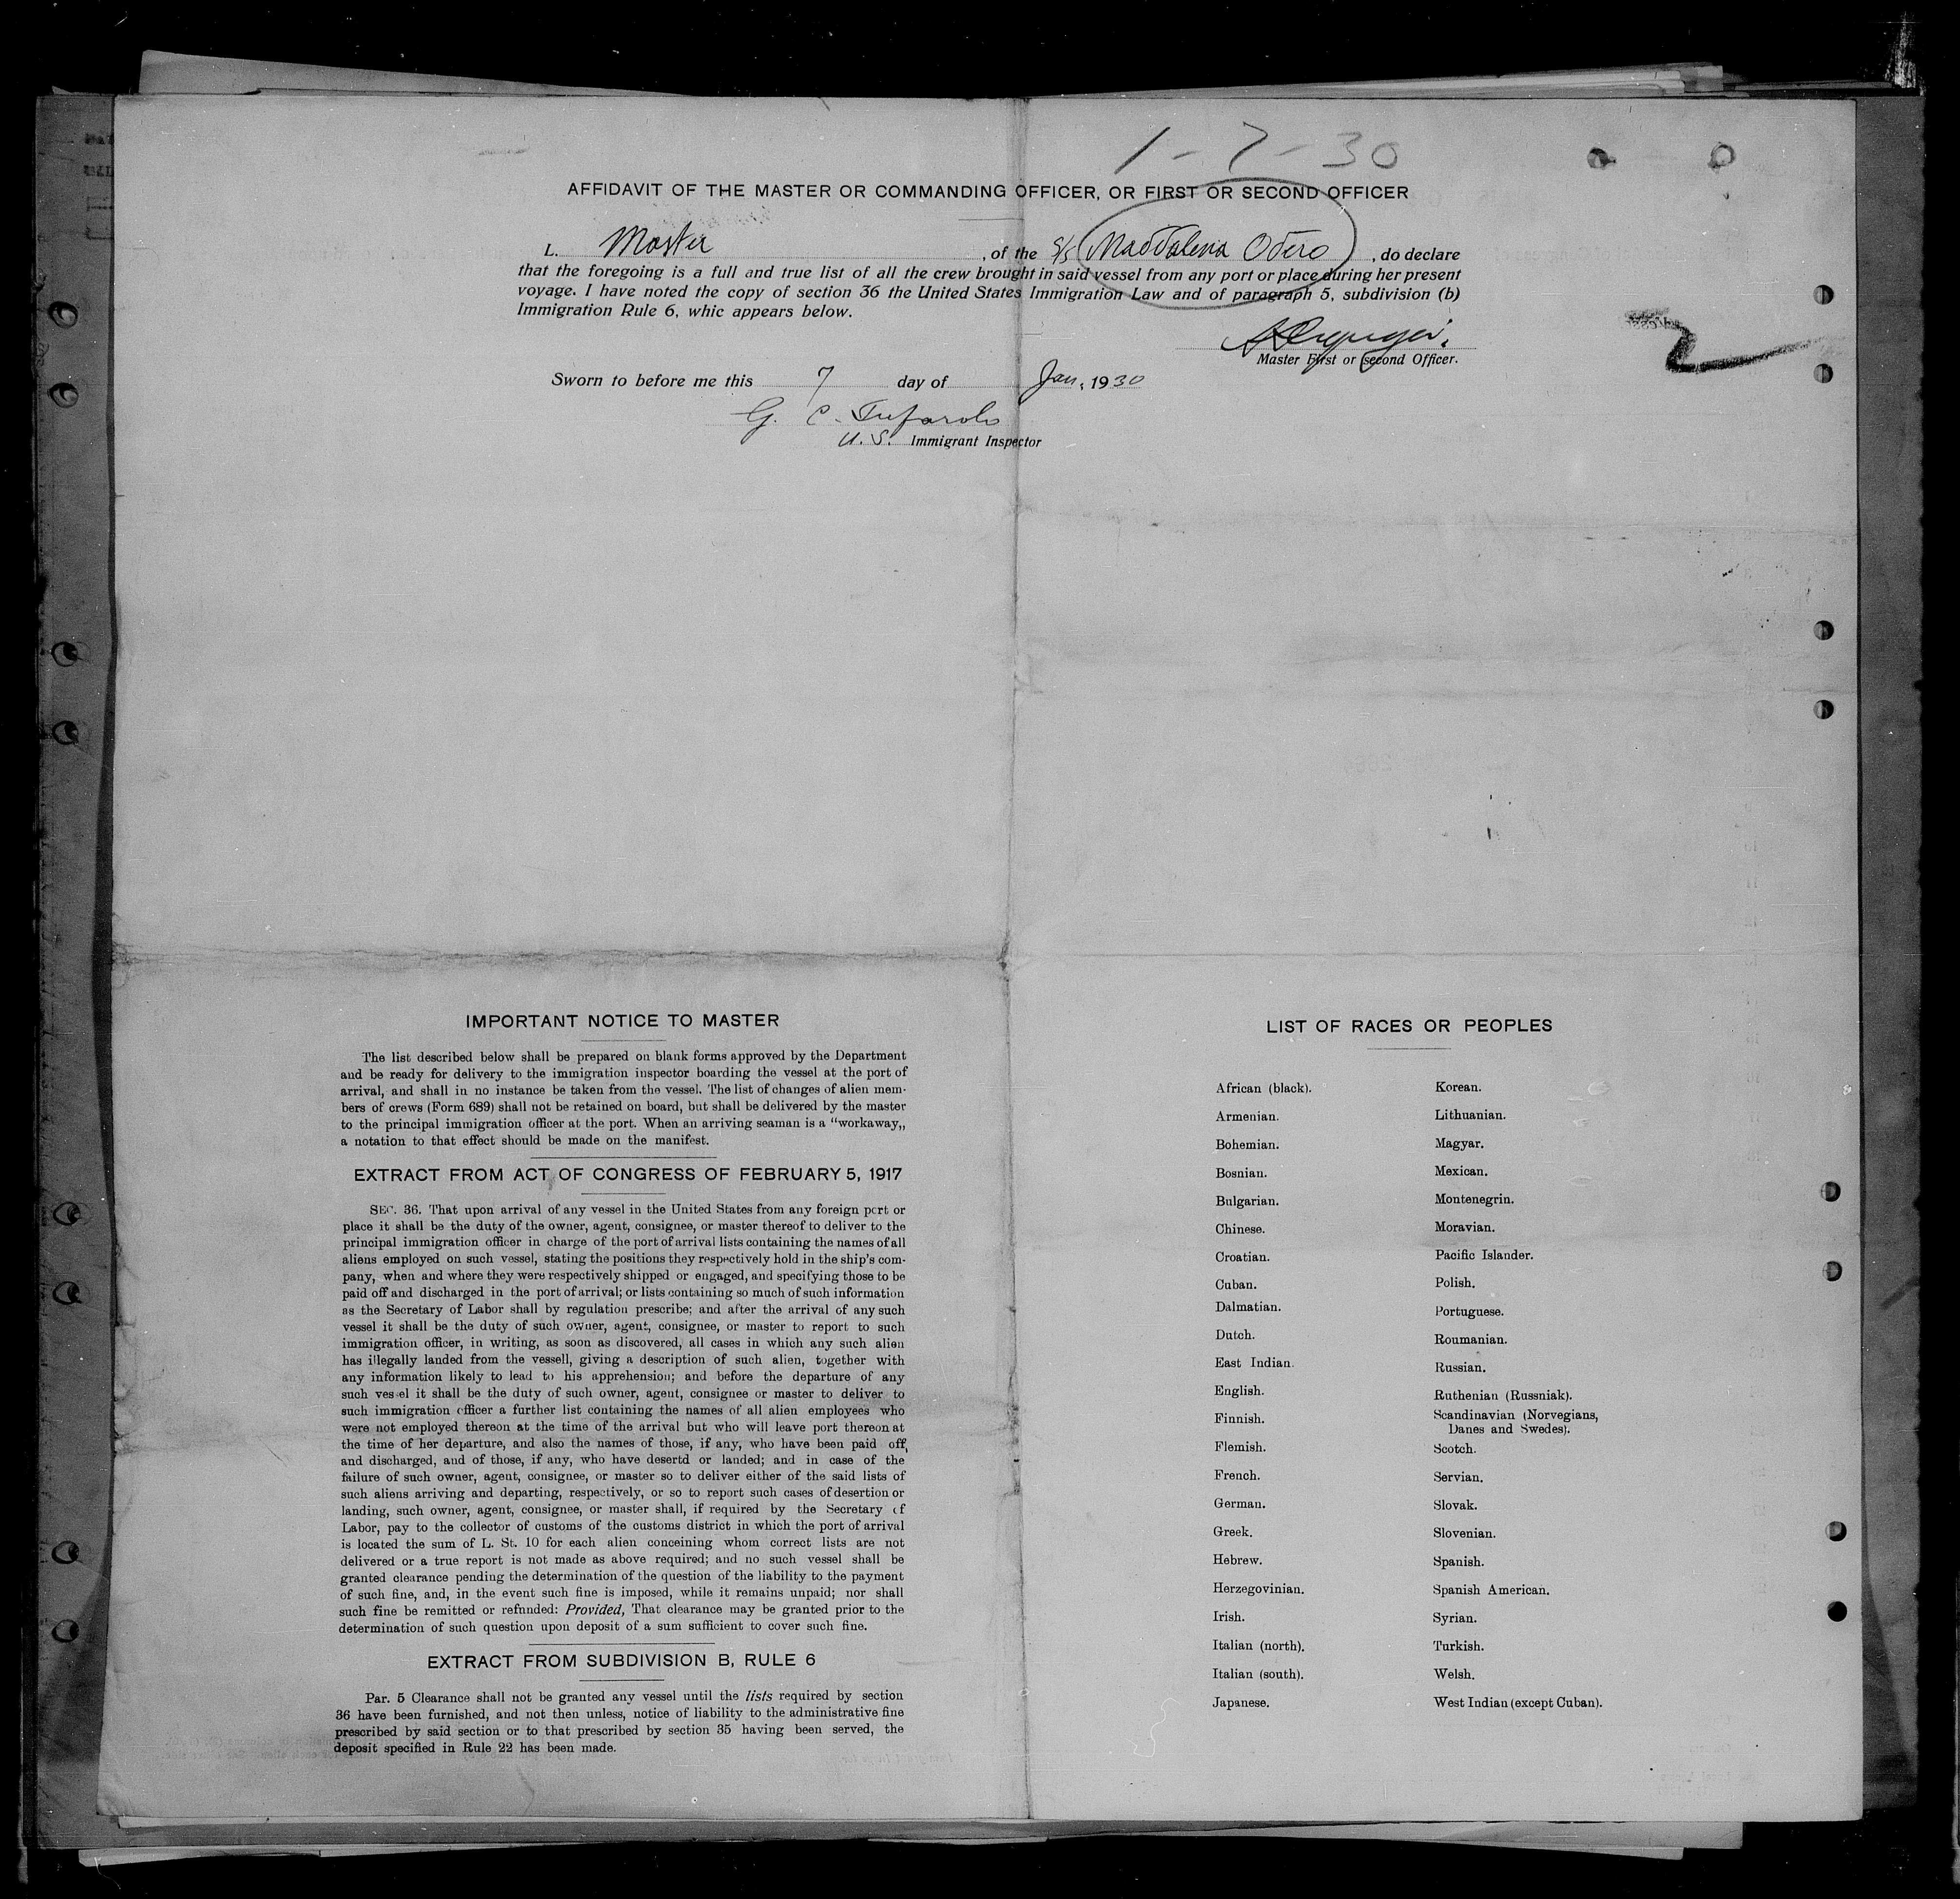 1-7-30
AFFIDAVIT OF THE MASTER OR COMMANDING OFFICER, OR FIRST OR SECOND OFFICER
L. Master, of the S/S Maddalena Odero, do declare
that the foregoing is a full and true list of all the crew brought in said vessel from any port or place during her present
voyage. I have noted the copy of section 36 the United States Immigration Law and of paragraph 5, subdivision (b)
Immigration Rule 6, whic appears below.
Master First or second Officer.
Sworn to before me this 7 day of Jan, 1930
G. C.
U. S. Immigrant Inspector
2
IMPORTANT NOTICE TO MASTER
The list described below shall be prepared on blank forms approved by the Department
and be ready for delivery to the immigration inspector boarding the vessel at the port of
arrival, and shall in no instance be taken from the vessel. The list of changes of alien mem-
bers of crews (Form 689) shall not be retained on board, but shall be delivered by the master
to the principal immigration officer at the port. When an arriving seaman is a "workaway,,
a notation to that effect should be made on the manifest.
EXTRACT FROM ACT OF CONGRESS OF FEBRUARY 5, 1917
SEC. 36. That upon arrival of any vessel in the United States from any foreign port or
place it shall be the duty of the owner, agent, consignee, or master thereof to deliver to the
principal immigration officer in charge of the port of arrival lists containing the names of all
aliens employed on such vessel, stating the positions they respectively hold in the ship's com-
pany, when and where they were respectively shipped or engaged, and specifying those to be
paid off and discharged in the port of arrival; or lists containing so much of such information
as the Secretary of Labor shall by regulation prescribe; and after the arrival of any such
vessel it shall be the duty of such owner, agent, consignee, or master to report to such
immigration officer, in writing, as soon as discovered, all cases in which any such alien
has illegally landed from the vessell, giving a description of such alien, together with
any information likely to lead to his apprehension; and before the departure of any
such vessel it shall be the duty of such owner, agent, consignee or master to deliver to
such immigration officer a further list containing the names of all alien employees who
were not employed thereon at the time of the arrival but who will leave port thereon at
the time of her departure, and also the names of those, if any, who have been paid off,
and discharged, and of those, if any, who have desertd or landed; and in case of the
failure of such owner, agent, consignee, or master so to deliver either of the said lists of
such aliens arriving and departing, respectively, or so to report such cases of desertion or
landing, such owner, agent, consignee, or master shall, if required by the Secretary of
Labor, pay to the collector of customs of the customs district in which the port of arrival
is located the sum of L. St. 10 for each alien conceining whom correct lists are not
delivered or a true report is not made as above required; and no such vessel shall be
granted clearance pending the determination of the question of the liability to the payment
of such fine, and, in the event such fine is imposed, while it remains unpaid; nor shall
such fine be remitted or refunded: Provided, That clearance may be granted prior to the
determination of such question upon deposit of a sum sufficient to cover such fine.
EXTRACT FROM SUBDIVISION B, RULE 6
Par. 5 Clearance shall not be granted any vessel until the lists required by section
36 have been furnished, and not then unless, notice of liability to the administrative fine
prescribed by said section or to that prescribed by section 35 having been served, the
deposit specified in Rule 22 has been made.
LIST OF RACES OR PEOPLES
African (black).
Armenian.
Bohemian.
Bosnian.
Bulgarian.
Chinese.
Croatian.
Cuban.
Dalmatian.
Dutch.
East Indian.
English.
Finnish.
Flemish.
French.
German.
Greek.
Hebrew.
Herzegovinian.
Irish.
Italian (north).
Italian (south).
Japanese.
Korean.
Lithuanian.
Magyar.
Mexican.
Montenegrin.
Moravian.
Pacific Islander.
Polish.
Portuguese.
Roumanian.
Russian.
Ruthenian (Russniak).
Scandinavian (Norvegians,
Danes and Swedes).
Scotch.
Servian.
Slovak.
Slovenian.
Spanish.
Spanish American.
Syrian.
Turkish.
Welsh.
West Indian (except Cuban).